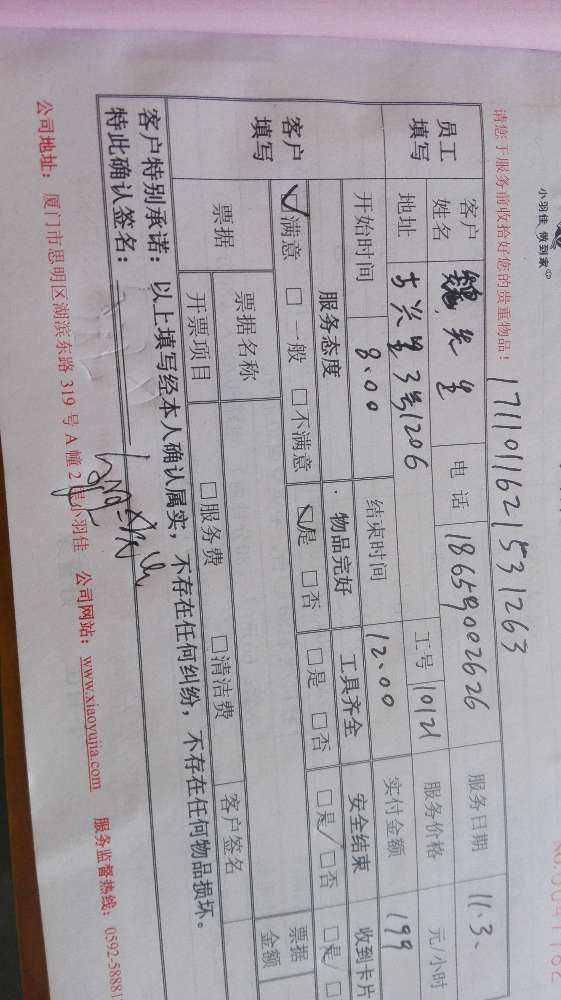 小羽佳 做到家
请您于服务前收拾好您的贵重物品！
171101162153 1263
员工填写 客户姓名 魏先生 电话 18659002626 服务日期 11.3.
地址 古兴里3号1206 工号 10121 服务价格 元/小时
开始时间 8:00 结束时间 12:00 实付金额 199
客户填写 服务态度 物品完好 工具齐全 安全结束 收到卡片
☑满意 □一般 □不满意 ☑是 □否 □是 □否 □是 □否 □是 □
票据 票据名称 票据金额
开票项目 □服务费 □清洁费 客户签名
客户特别承诺：以上填写经本人确认属实，不存在任何纠纷，不存在任何物品损坏。
特此确认签名：
公司地址：厦门市思明区湖滨东路 319 号 A 幢 2 层小羽佳 公司网站：www.xiaoyujia.com 服务监督热线：0592-58881